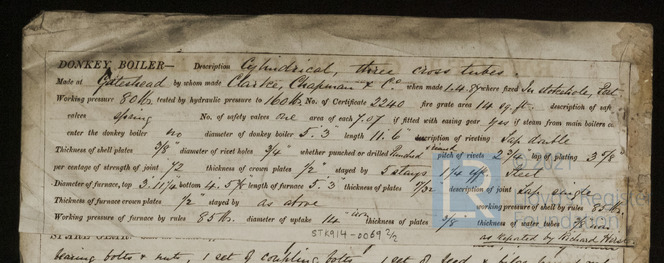 DONKEY BOILER— Description Cylindrical, three cross tubes.
Made at Gateshead by whom made Clarke, Chapman & Co. when made 1.4.87 where fixed In stokehole,
Working pressure 80 lbs. tested by hydraulic pressure to 160 lbs. No. of Certificate 2240 fire grate area 14 sq. ft. description of safety
valves spring No. of safety valves one area of each 7.07 if fitted with easing gear yes if steam from main boilers can
enter the donkey boiler no diameter of donkey boiler 5'.3" length 11'.6" description of riveting Lap double
Thickness of shell plates 3/8" diameter of rivet holes 3/4" whether punched or drilled Punched pitch of rivets 2 3/4 lap of plating 3 7/8
per centage of strength of joint thickness of crown plates 1/2" stayed by 5 stays 1 1/4 eff. Steel
Diameter of furnace, top 3.11 1/2 bottom 4.5 length of furnace 5'.3 thickness of plates description of joint Lap single
Thickness of furnace crown plates 1/2" stayed by as above working pressure of shell by rules
Working pressure of furnace by rules 85 lbs. diameter of uptake 14" thickness of plates 3/8 thickness of water tubes 3/8
as reported by Richard
STK914-0069 2/2
SPARE GEAR
bearing bolts & nuts, 1 set of coupling bolts, 1 set of feed & bilge
© 2021
LR
Foundation